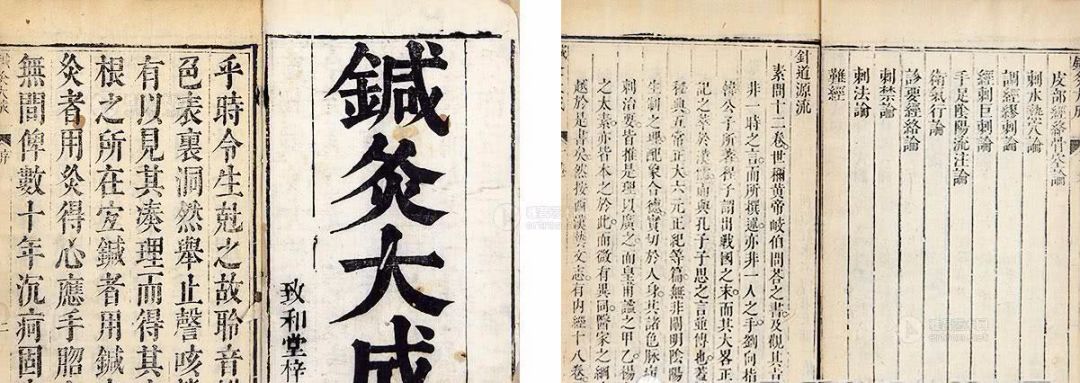 鍼灸大成
致和堂梓
乎時令生尅之故聆音
色表裏洞然舉止謦咳
有以見其凑理而得其
根之所在宐鍼者用鍼
灸者用灸得心應手
無間俾數十年沉痾固
序
二
皮部經絡骨空論
刺水熱穴論
調經繆刺論
經刺巨刺論
手足陰陽流注論
衛氣行論
診要經絡論
刺禁論
刺法論
難經
針道源流
素問十二卷世稱黃帝岐伯問荅之書及觀其言
非一時之言而所撰述亦非一人之手劉向指
韓公子所著程子謂出戰國之末而其大畧正
記之萃於漢儒而與孔子子思之言並傳也蓋
秘典五常正大六元正紀等篇無非闡明陰陽
生制之理配象合德實切於人身其諸色脉病
刺治要皆推是理以廣之而皇甫謐之甲乙楊
之太素亦皆本之於此而微有異同醫家之綱
越於是書矣然按西漢藝文志有内經十八卷